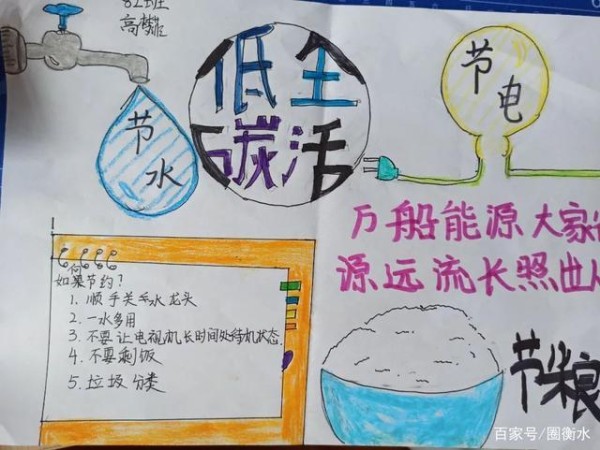 82班
节水
低碳
生活
节电
万船能源大家
源远流长照世
如何节约?
1. 顺手关水龙头
2. 一水多用
3. 不要让电视机长时间处待机状态.
4. 不要剩饭
5. 垃圾分类
节粮
百家号/圈衡水